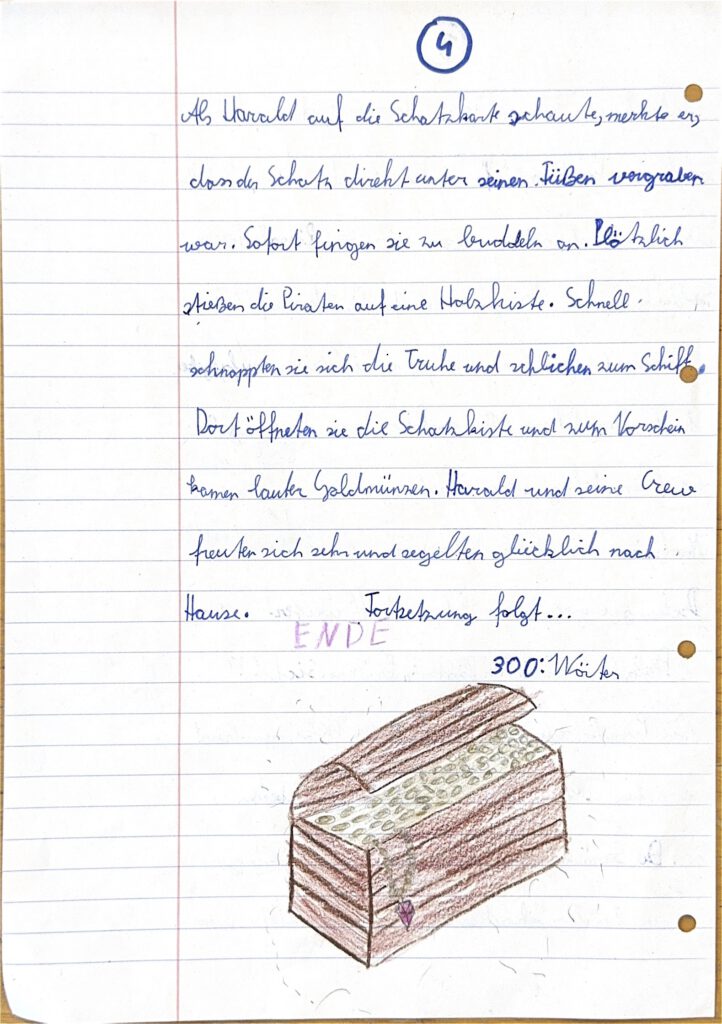 4
Als Harald auf die Schatzkarte schaute, merkte er,
dass der Schatz direkt unter seinen Füßen vergraben
war. Sofort fingen sie zu buddeln an. Plötzlich
stießen die Piraten auf eine Holzkiste. Schnell
schnappten sie sich die Truhe und schlichen zum Schiff.
Dort öffneten sie die Schatzkiste und zum Vorschein
kamen lauter Goldmünzen. Harald und seine Crew
freuten sich sehr und segelten glücklich nach
Hause. Fortsetzung folgt...
ENDE
300: Wörter